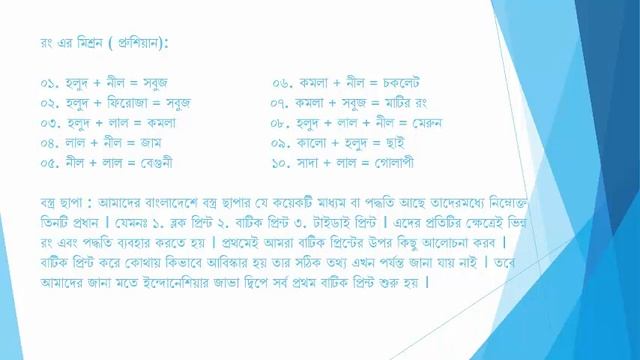 রং এর মিশ্রন ( প্রুশিয়ান):
০১. হলুদ + নীল = সবুজ
০২. হলুদ + ফিরোজা = সবুজ
০৩. হলুদ + লাল = কমলা
০৪. লাল + নীল = জাম
০৫. নীল + লাল = বেগুনী
০৬. কমলা + নীল = চকলেট
০৭. কমলা + সবূজ = মাটির রং
০৮. হলুদ + লাল + নীল = মেরুন
০৯. কালো + হলুদ = ছাই
১০. সাদা + লাল = গোলাপী
বস্ত্র ছাপা : আমাদের বাংলাদেশে বস্ত্র ছাপার যে কয়েকটি মাধ্যম বা পদ্ধতি আছে তাদেরমধ্যে নিম্নোক্ত
তিনটি প্রধান | যেমনঃ ১. ব্লক প্রিন্ট ২. বাটিক প্রিন্ট ৩. টাইডাই প্রিন্ট | এদের প্রতিটির ক্ষেত্রেই ভিন্ন
রং এবং পদ্ধতি ব্যবহার করতে হয় | প্রথমেই আমরা বাটিক প্রিন্টের উপর কিছু আলোচনা করব |
বাটিক প্রিন্ট করে কোথায় কিভাবে আবিস্কার হয় তার সঠিক তথ্য এখন পর্যন্ত জানা যায় নাই | তবে
আমাদের জানা মতে ইন্দোনেশিয়ার জাভা দ্বিপে সর্ব প্রথম বাটিক প্রিন্ট শুরু হয় |